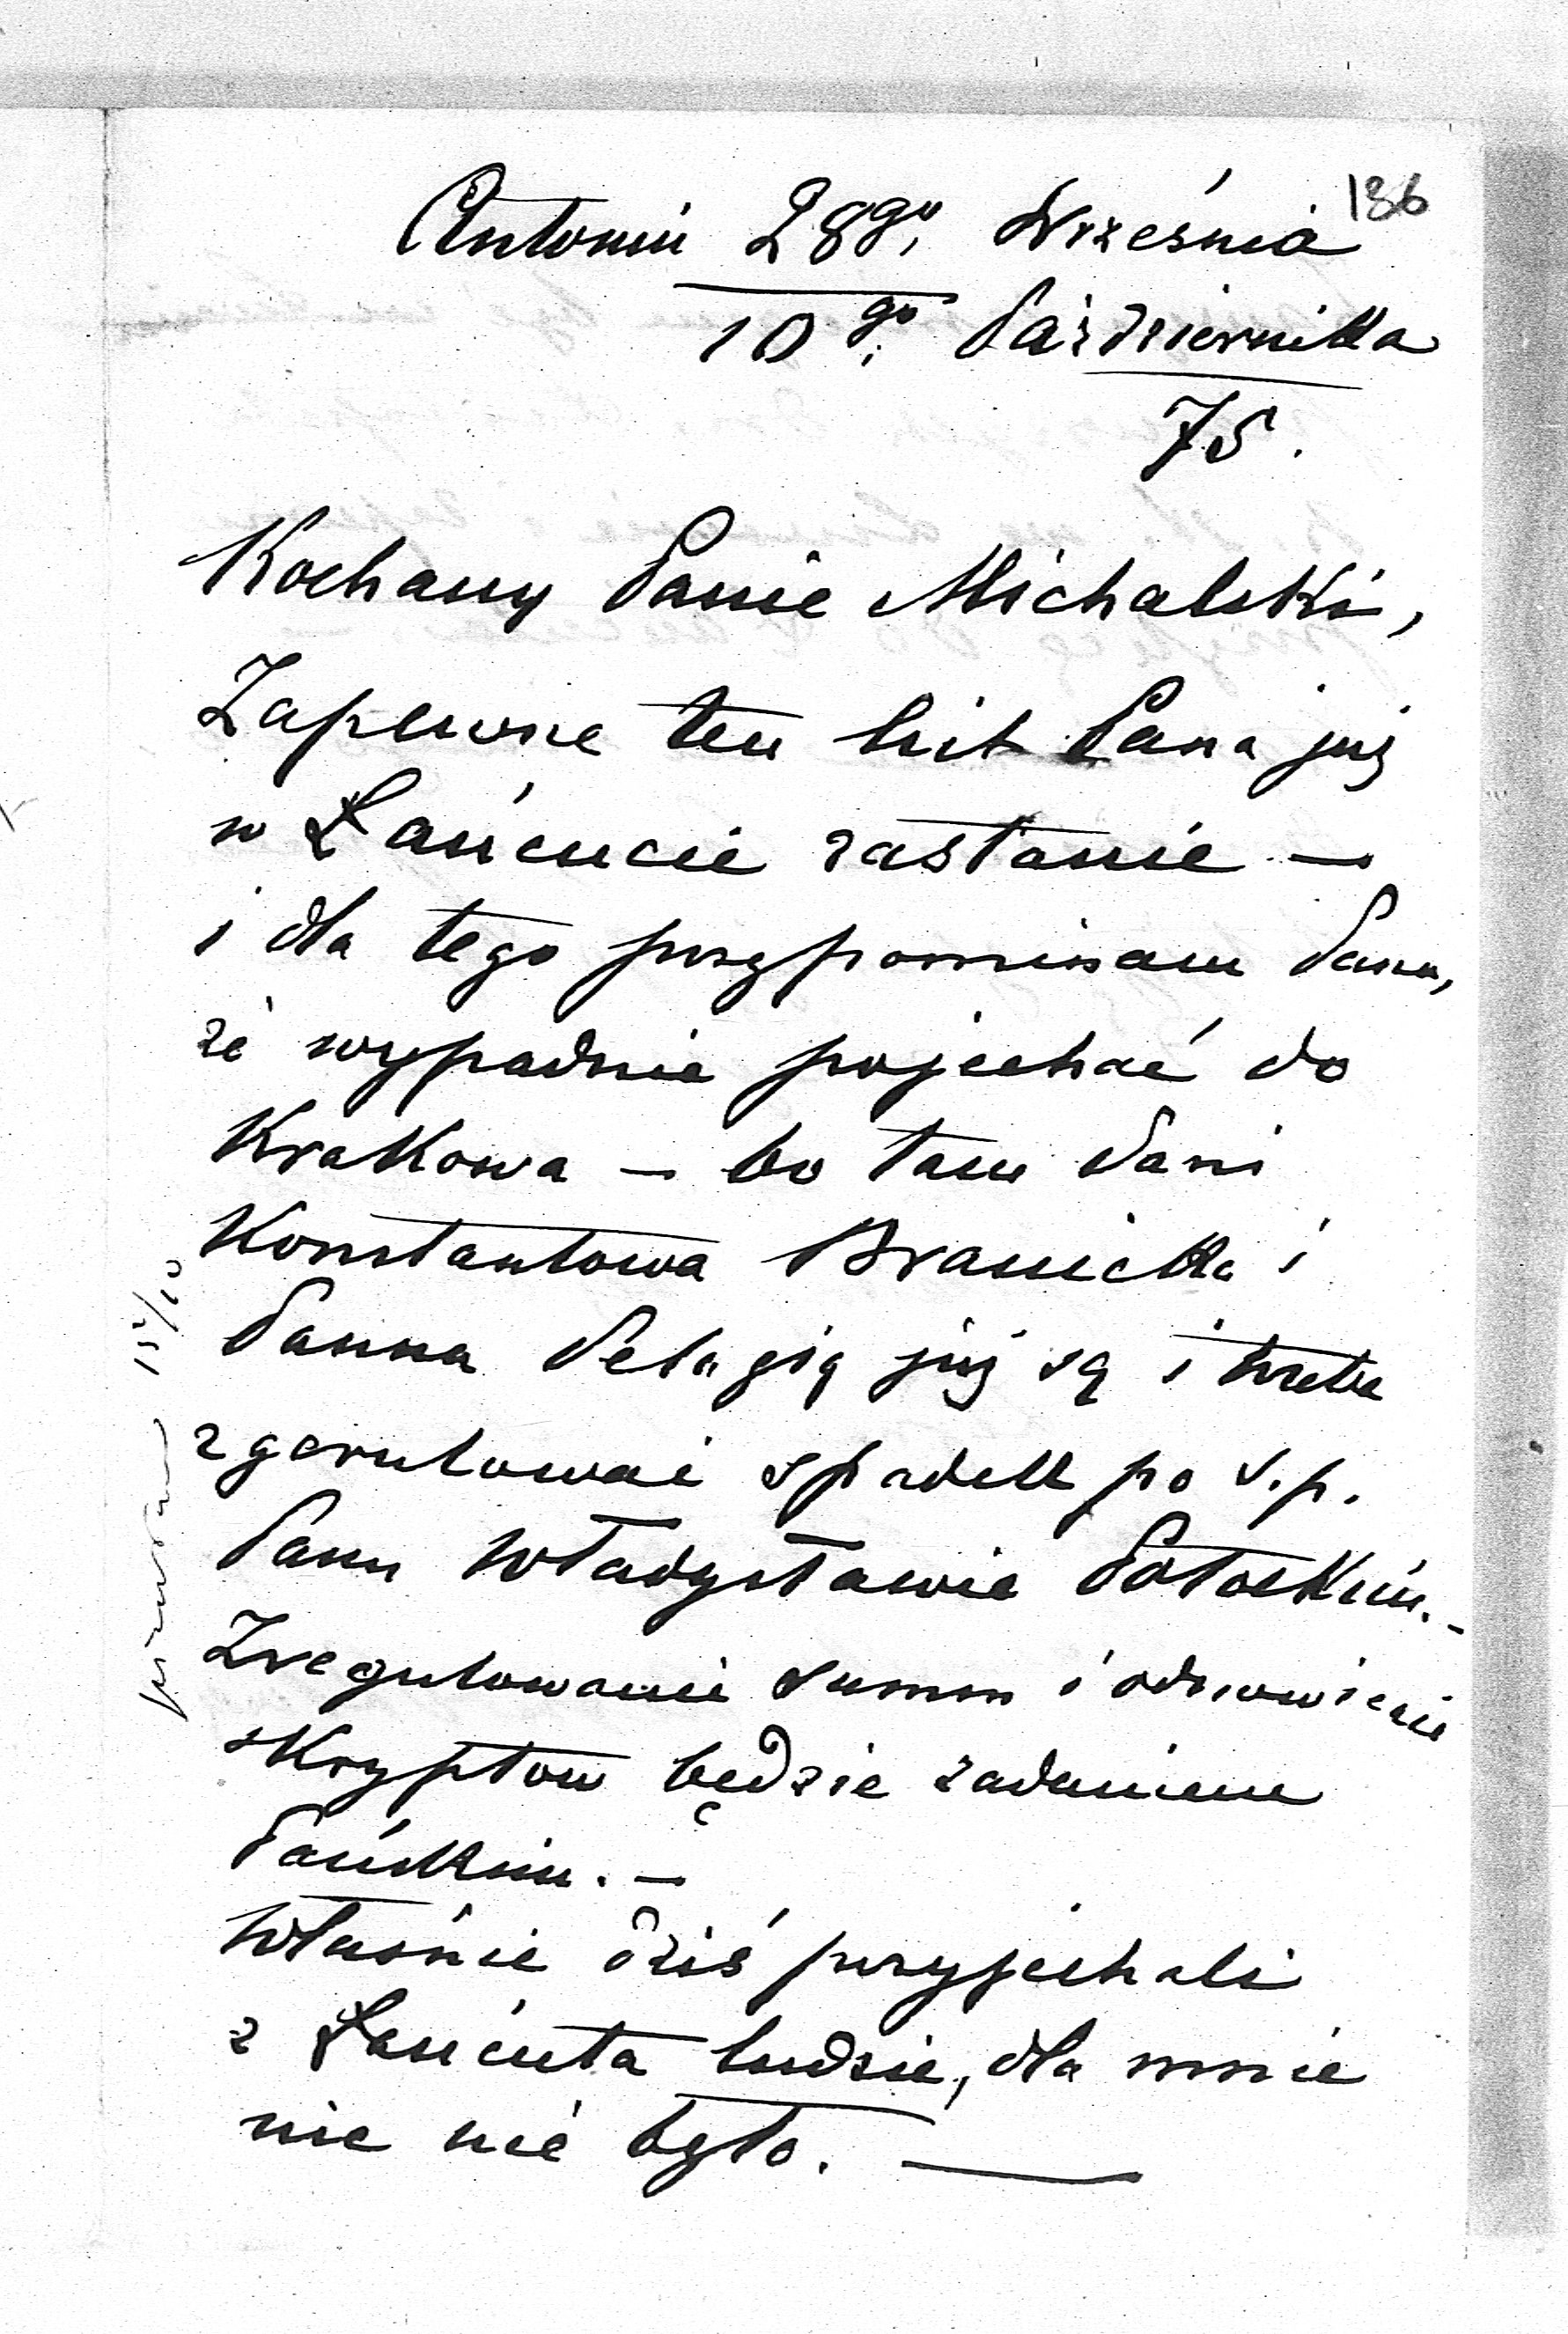 136
Antonin 28go Września
10go Października
75.
Kochany Panie Michalski,
Zapewne ten list Pana już
w Łańcucie zastanie —
i dla tego przypominam Panu,
że wypadnie pojechać do
Krakowa — bo tam Pani
Konstantowa Branicka i
Panna Pelagią już są i
zgerulować spadek po ś.p.
Panu Władysławie Potockim. -
Zregulowanie summ i odnowienie
skryptow będzie zadaniem
Pańskim. —
Właśnie dziś przyjechali
z Łańcuta ludzie, dla mnie
nic nie było. —
15/10